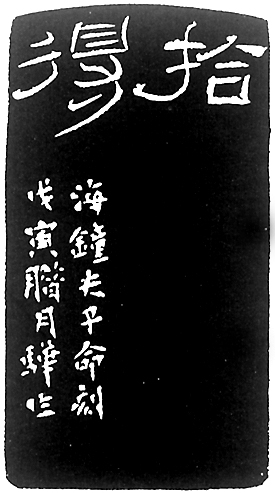 拾得
海鐘夫子命刻
戊寅臘月驊